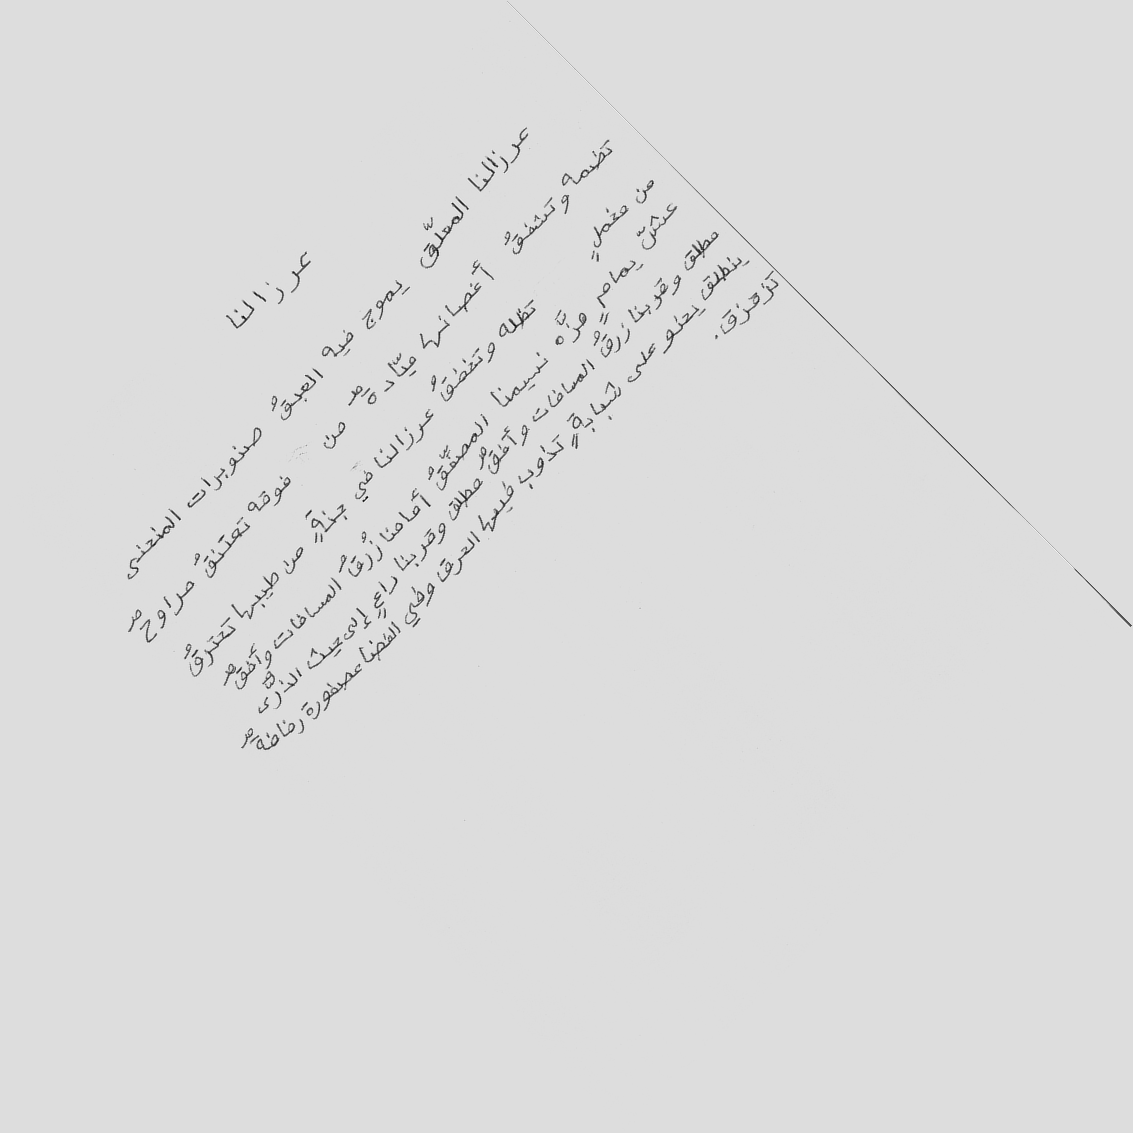 عرزالنا
عرزالنا المعلّق يموج فيه العبقُ صنوبرات المنحنى
تضمه وتشفقُ أغصانها ميّادةٌ من فوقه تعتنقُ مراوحٌ
من مخملٍ تظله وتخفقُ عرزالنا في جنةٍ من طيبها تعترقُ
عشّ يمامٍ هزَّه نسيمنا المصفّقُ أمامنا زُرقُ المسافات وأفقٌ
مطلق وقربنا زرقُ المسافات وأفقٌ مطلق وقربنا راعٍ إلى حيث الذرَّى
ينطلق يعلو على شبابةٍ تذوب فيها العرق وفي الفضا عصفورة رفافةٌ
تزقزق.